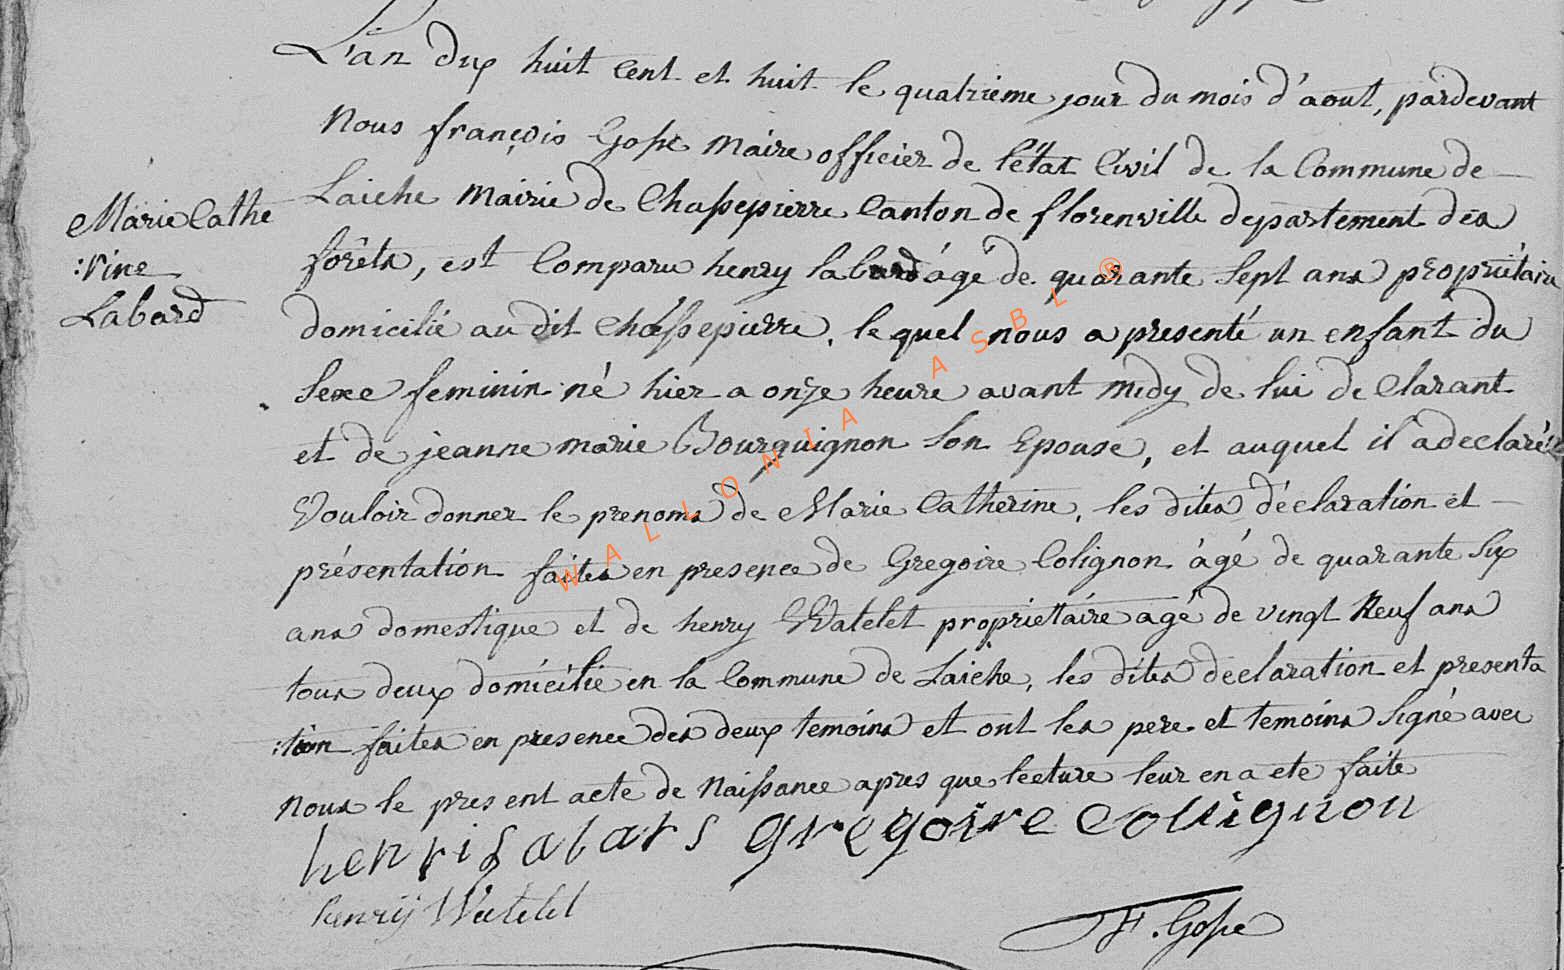 L'an dix huit Cent et huit le quatrieme jour du mois d'aout, pardevant
Nous françois Gosse Maire officier de l'état Civil de la Commune de
Laiche Mairie de Chassepierre Canton de florenville departement des
forêts, est Comparu henry labard âgé de quarante Sept ans propriétaire
Marie Cathe
:rine
Labard
domicilié au dit Chassepierre, le quel nous a presenté un enfant du
Sexe feminin né hier a onze heure avant midy de lui de Clarant
et de jeanne marie Bourguignon Son Epouse, et auquel il a declaré
Vouloir donner le prenoms de Marie Catherine, les dites déclaration et
présentation faites en presence de Gregoire Colignon âgé de quarante Six
ans domestique et de henry Watelet propriettaire agé de vingt Neuf ans
tous deux domicilié en la Commune de Laiche, les dites declaration et presenta
:tion faites en presence des deux temoins et ont les pere et temoins Signé avec
Nous le present acte de Naissance apres que lecture leur en a ete faite
henri labars gregoire collignon
henrÿ Watelet
F. Gosse
WALLONIA ASBL ®